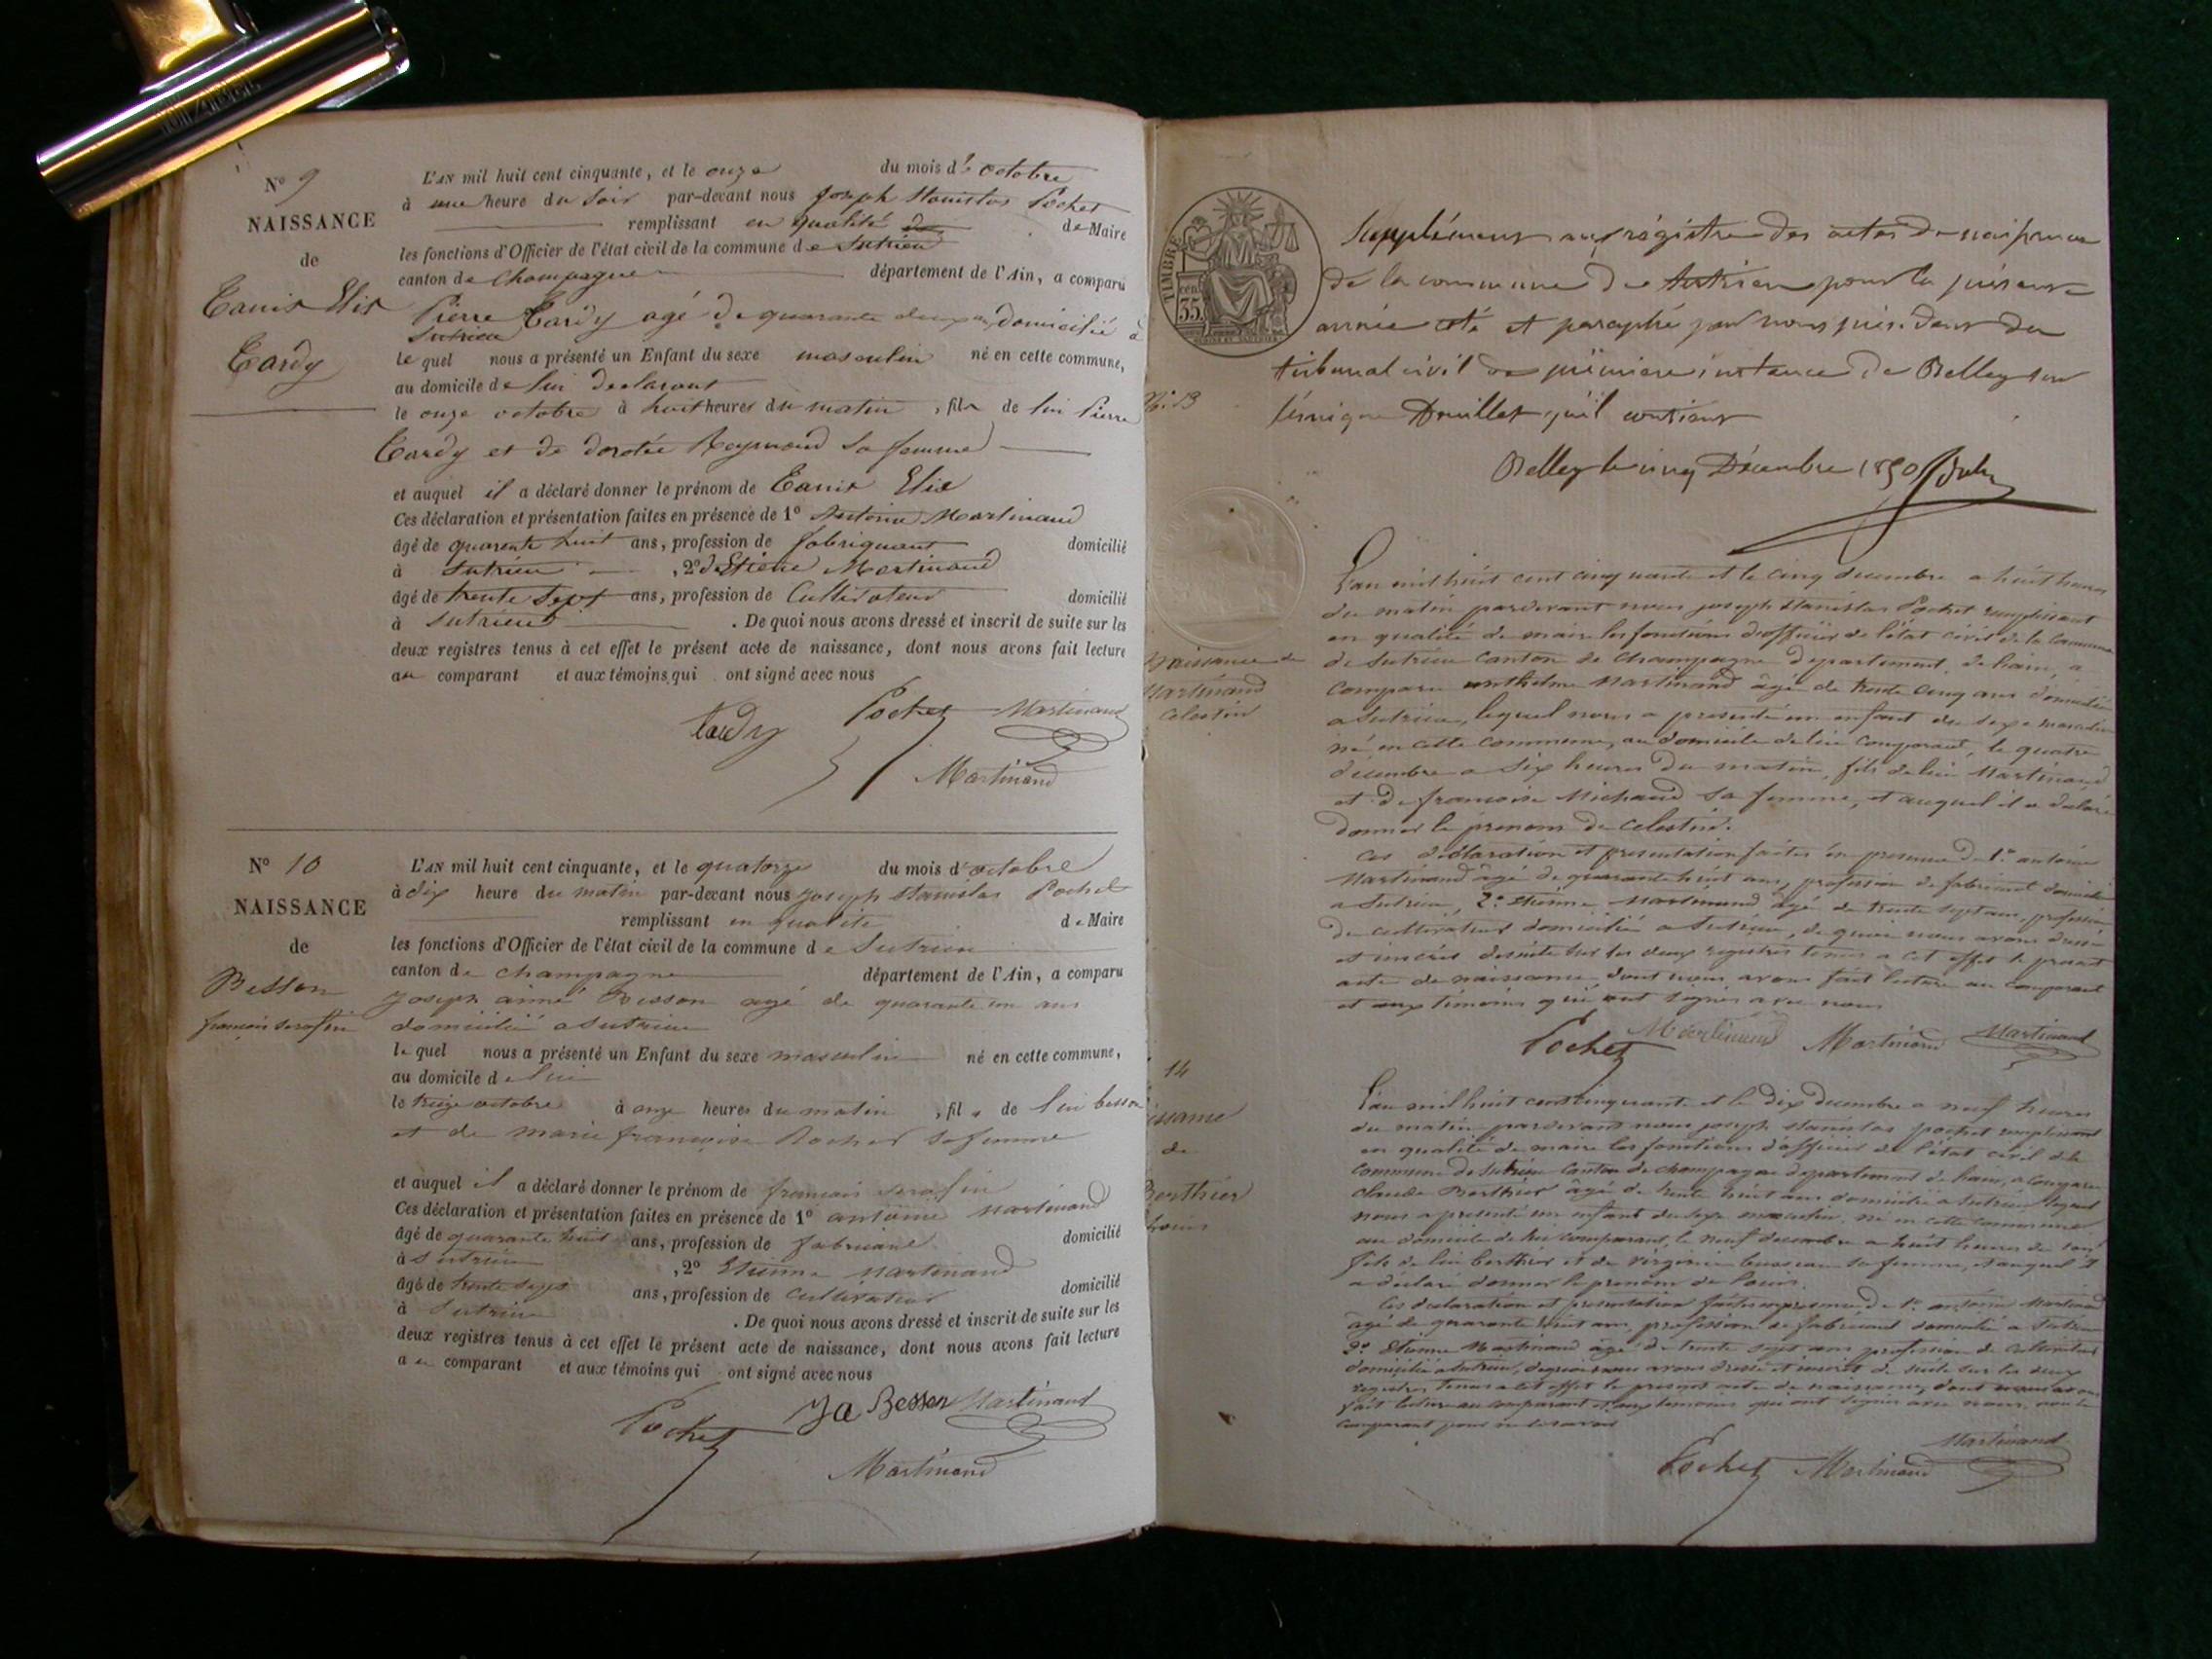 N° 9
NAISSANCE
de
Tanis Elis
Tardy
L'AN mil huit cent cinquante, et le onze du mois de octobre
à une heure du soir par-devant nous joseph Stanislas Pochet
remplissant en qualité de Maire
les fonctions d'Officier de l'état civil de la commune de Sutrieu
canton de Champagne département de l'Ain, a comparu
Pierre Tardy agé de quarante deux ans domicilié à
Sutrieu
lequel nous a présenté un Enfant du sexe masculin né en cette commune,
au domicile de lui declarant
le onze octobre à huit heures du matin, fils de lui Pierre
Tardy et de dorotée Reymond sa femme
et auquel il a déclaré donner le prénom de Tanis Elie
Ces déclaration et présentation faites en présence de 1° Antoine Martinand
âgé de quarante huit ans, profession de fabriquant domicilié
à Sutrieu, 2° Etiene Martinand
âgé de trente sept ans, profession de Cultivateur domicilié
à Sutrieu. De quoi nous avons dressé et inscrit de suite sur les
deux registres tenus à cet effet le présent acte de naissance, dont nous avons fait lecture
au comparant et aux témoins qui ont signé avec nous
Tardy Pochet Martinand
Martinand
N° 10
NAISSANCE
de
Besson
françois serafin
L'AN mil huit cent cinquante, et le quatorze du mois d'octobre
à dix heure du matin par-devant nous joseph stanislas Pochet
remplissant en qualité de Maire
les fonctions d'Officier de l'état civil de la commune de Sutrieu
canton de champagne département de l'Ain, a comparu
joseph aimé Besson agé de quarante un ans
domicilié a sutrieu
lequel nous a présenté un Enfant du sexe masculin né en cette commune,
au domicile de lui
le treize octobre à onze heures du matin, fils de lui besson
et de marie françoise Rochet sa femme
et auquel il a déclaré donner le prénom de francois serafin
Ces déclaration et présentation faites en présence de 1° antoine Martinand
âgé de quarante huit ans, profession de fabricant domicilié
à Sutrieu, 2° Etienne Martinand
âgé de trente sept ans, profession de cultivateur domicilié
à Sutrieu. De quoi nous avons dressé et inscrit de suite sur les
deux registres tenus à cet effet le présent acte de naissance, dont nous avons fait lecture
au comparant et aux témoins qui ont signé avec nous
Pochet J a Besson Martinand
Martinand
TIMBRE
35
Supplément au régistre des actes de naissance
de la commune de Sutrieu pour la présente
année coté et paraphé par nous président du
tribunal civil de première instance de Belley sur
l'unique feuillet qu'il contient
Belley le cinq Décembre 1850
N° 13
Naissance de
Martinand
Celestin
L'an mil huit cent cinquante et le cinq decembre a huit heures
du matin pardevant nous joseph stanislas Pochet remplissant
en qualité de maire les fonctions d'officier de l'état civil de la commune
de Sutrieu canton de Champagne departement de l'ain, a
comparu anthelme Martinand âgé de trente cinq ans domicilié
a Sutrieu, lequel nous a presenté un enfant du sexe masculin
né en cette commune, au domicile de lui comparant, le quatre
décembre a six heures du matin, fils de lui Martinand
et de francoise Michaud sa femme, et auquel il a declaré
donner le prenom de Celestin.
ces déclaration et presentation faites en presence de 1° antoine
Martinand âgé de quarante huit ans, profession de fabricant domicilié
a Sutrieu, 2° Etienne Martinand âgé de trente sept ans, profession
de cultivateur domicilié a Sutrieu, de quoi nous avons dressé
et inscrit de suite sur les deux registres tenus a cet effet le present
acte de naissance, dont nous avons fait lecture au comparant
et aux témoins qui ont signés avec nous
Pochet Martinand Martinand Martinand
14
issance
de
Berthier
L'an mil huit cent cinquante et le dix decembre a neuf heures
du matin pardevant nous joseph stanislas pochet remplissant
en qualité de maire les fonctions d'officier de l'état civil de la
commune de Sutrieu canton de champagne departement de l'ain, a comparu
claude Berthier âgé de trente huit ans domicilié a Sutrieu lequel
nous a presenté un enfant du sexe masculin, né en cette commune
au domicile de lui comparant, le neuf decembre a huit heures du soir
fils de lui berthier et de virginie sa femme, et auquel il
a declaré donner le prenom de
Ces declaration et presentation faites en presence de 1° antoine Martinand
agé de quarante huit ans, profession de fabricant domicilié a Sutrieu
2° Etienne Martinand âgé de trente sept ans profession de cultivateur
domicilié a Sutrieu, de quoi nous avons dressé et inscrit de suite sur les deux
registres tenus a cet effet le present acte de naissance, dont nous avons
fait lecture au comparant et aux temoins qui ont signés avec nous, non le
comparant pour ne le savoir
Martinand
Pochet Martinand